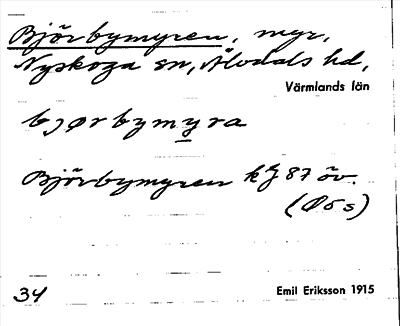 Björbymyren, myr,
Nyskoga sn, Älvdals hd,
Värmlands län
bjørbymyra
Björbymyren kg 87 öv.
(Ø5s)
34
Emil Eriksson 1915